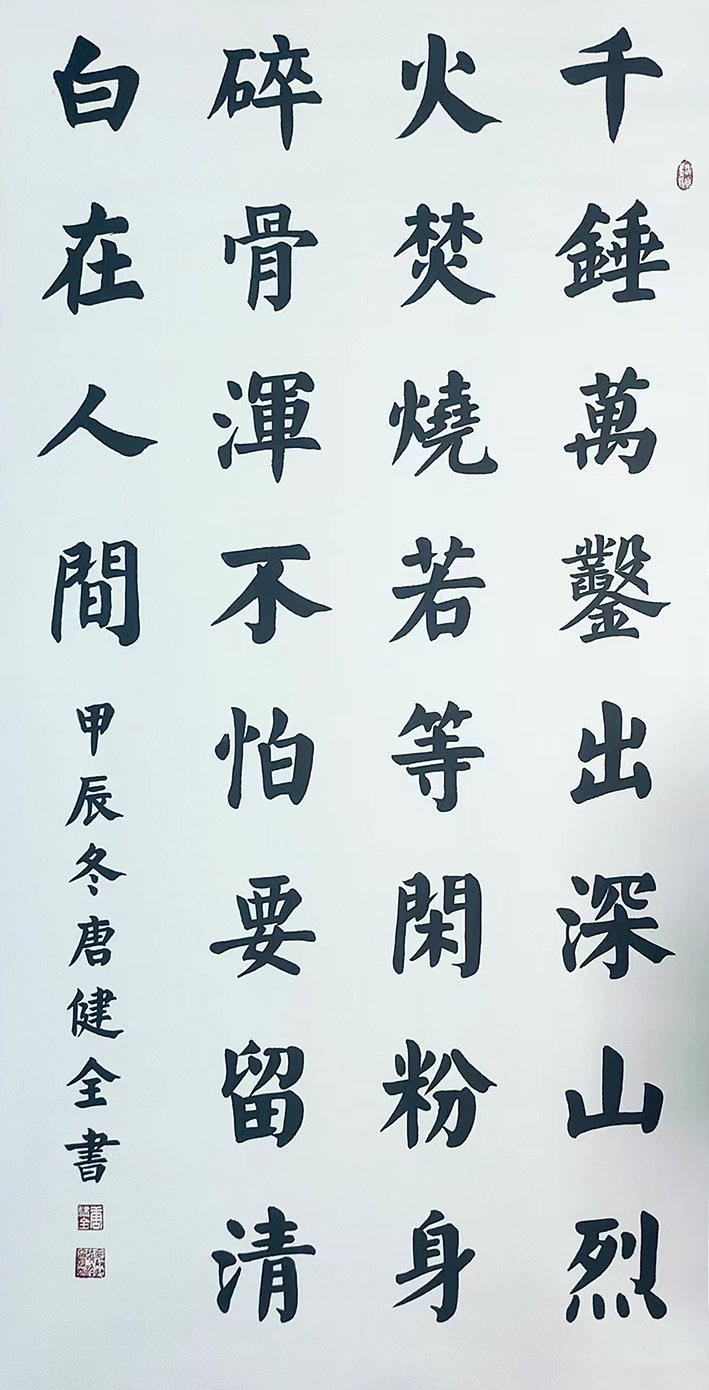 千錘萬鑿出深山烈
火焚燒若等閑粉身
碎骨渾不怕要留清
白在人間
甲辰冬唐健全書